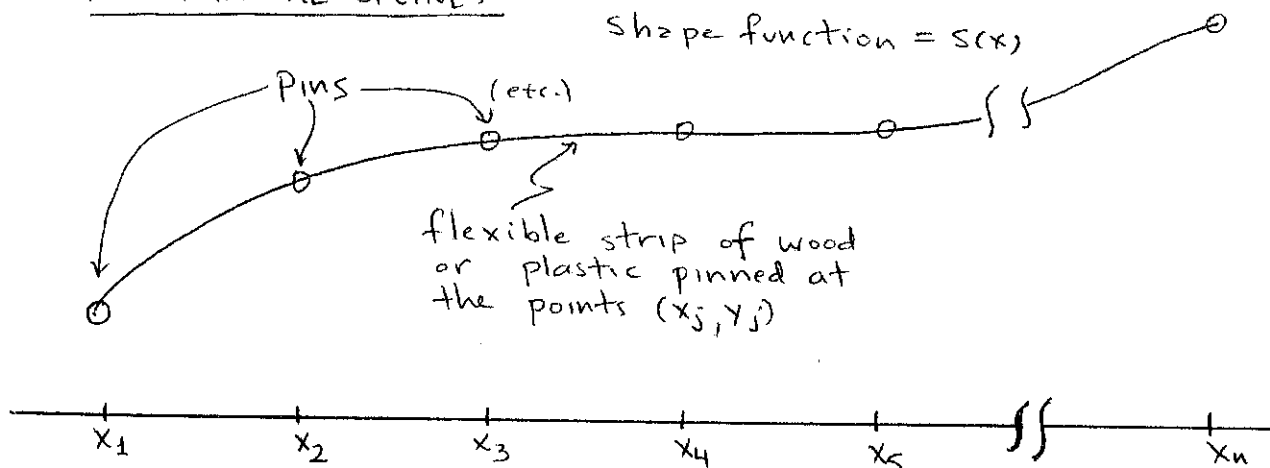 shape function = S(x)
Pins
(etc.)
flexible strip of wood
or plastic pinned at
the points (xj, yj)
x1 x2 x3 x4 x5 xn